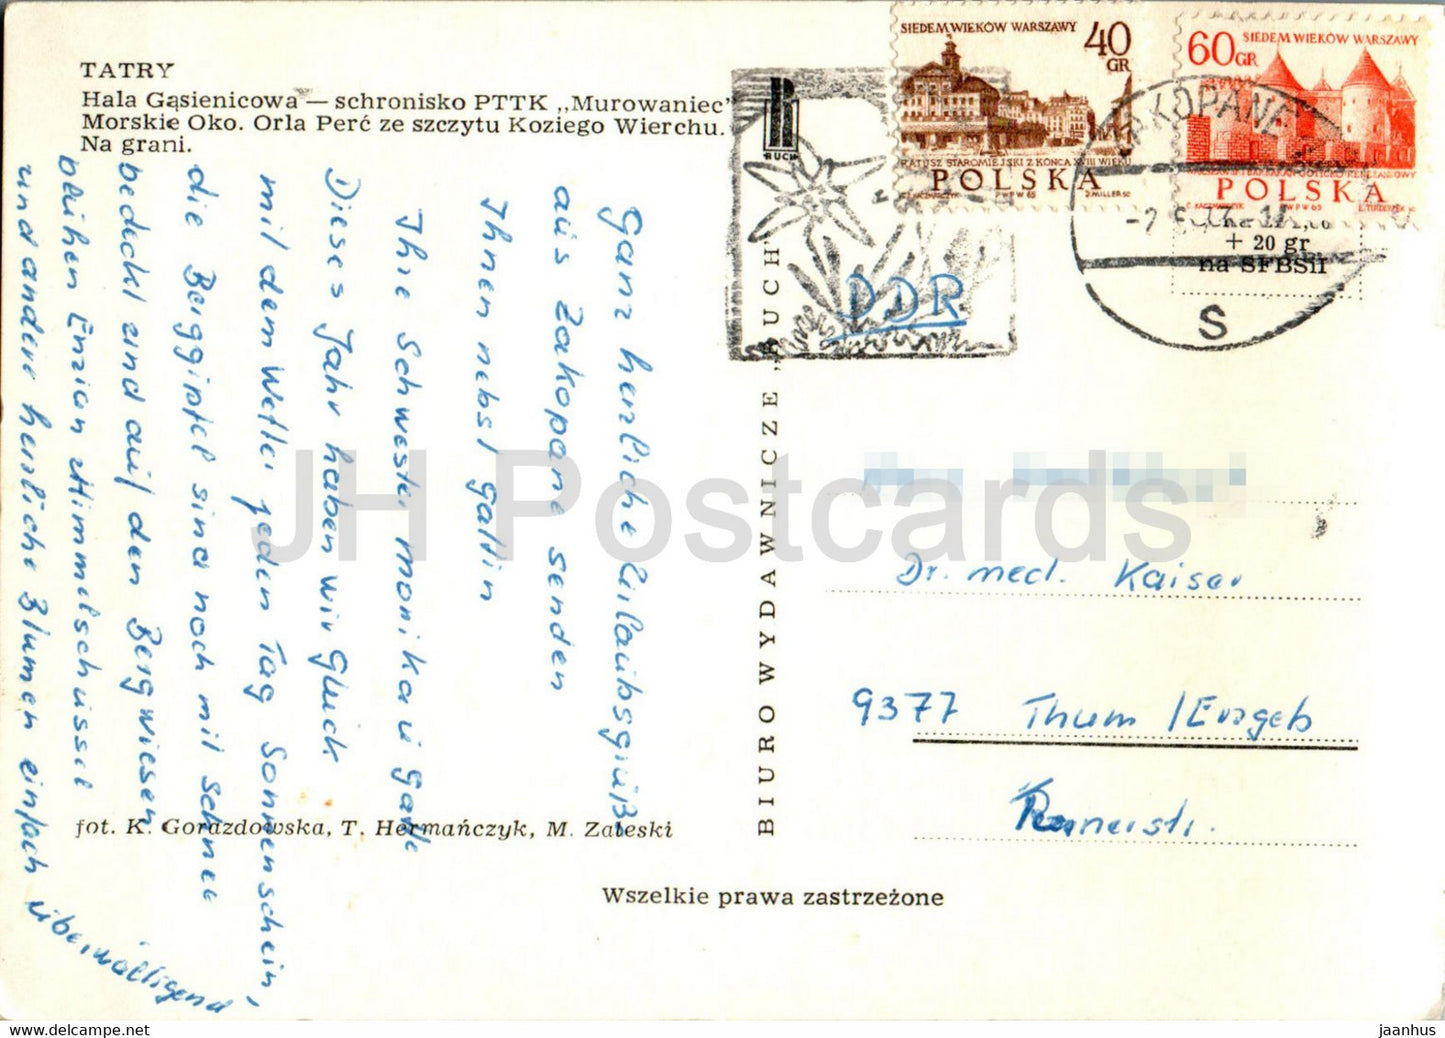 TATRY
Hala Gąsienicowa — schronisko PTTK „Murowaniec”
Morskie Oko. Orla Perć ze szczytu Koziego Wierchu.
Na grani.
Ganz herzliche Urlaubsgrüße
aus Zakopane senden
Ihnen nebst Gattin
Ihre Schwester Monika u Gatte
Dieses Jahr haben wir Glück
mit dem Wetter jeden Tag Sonnenschein
die Berggipfel sind noch mit Schnee
bedeckt und auf den Bergwiesen
blühen Enzian Himmelschlüssel
und andere herrliche Blumen einfach
überwältigend
fot. K. Gorazdowska, T. Hermańczyk, M. Zaleski
Wszelkie prawa zastrzeżone
BIURO WYDAWNICZE „RUCH”
RUCH
SIEDEM WIEKÓW WARSZAWY
40 GR
RATUSZ STAROMIEJSKI Z KOŃCA XVIII WIEKU
POLSKA
C. KACZMARCZYK PWPW 65 J. MILLER SC
SIEDEM WIEKÓW WARSZAWY
60 GR
POLSKA
C. KACZMARCZYK PWPW 65
ZAKOPANE
S
+ 20 gr
na SFBSiI
DDR
Dr. med. Kaiser
9377 Thum /Erzgeb
JH Postcards
www.delcampe.net
jaanhus